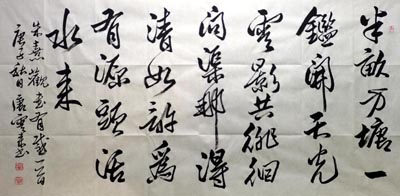 半畝方塘一
鑑開天光
雲影共徘徊
問渠那得
清如許為
有源頭活
水来
朱熹觀書有感一首
庚子秋月